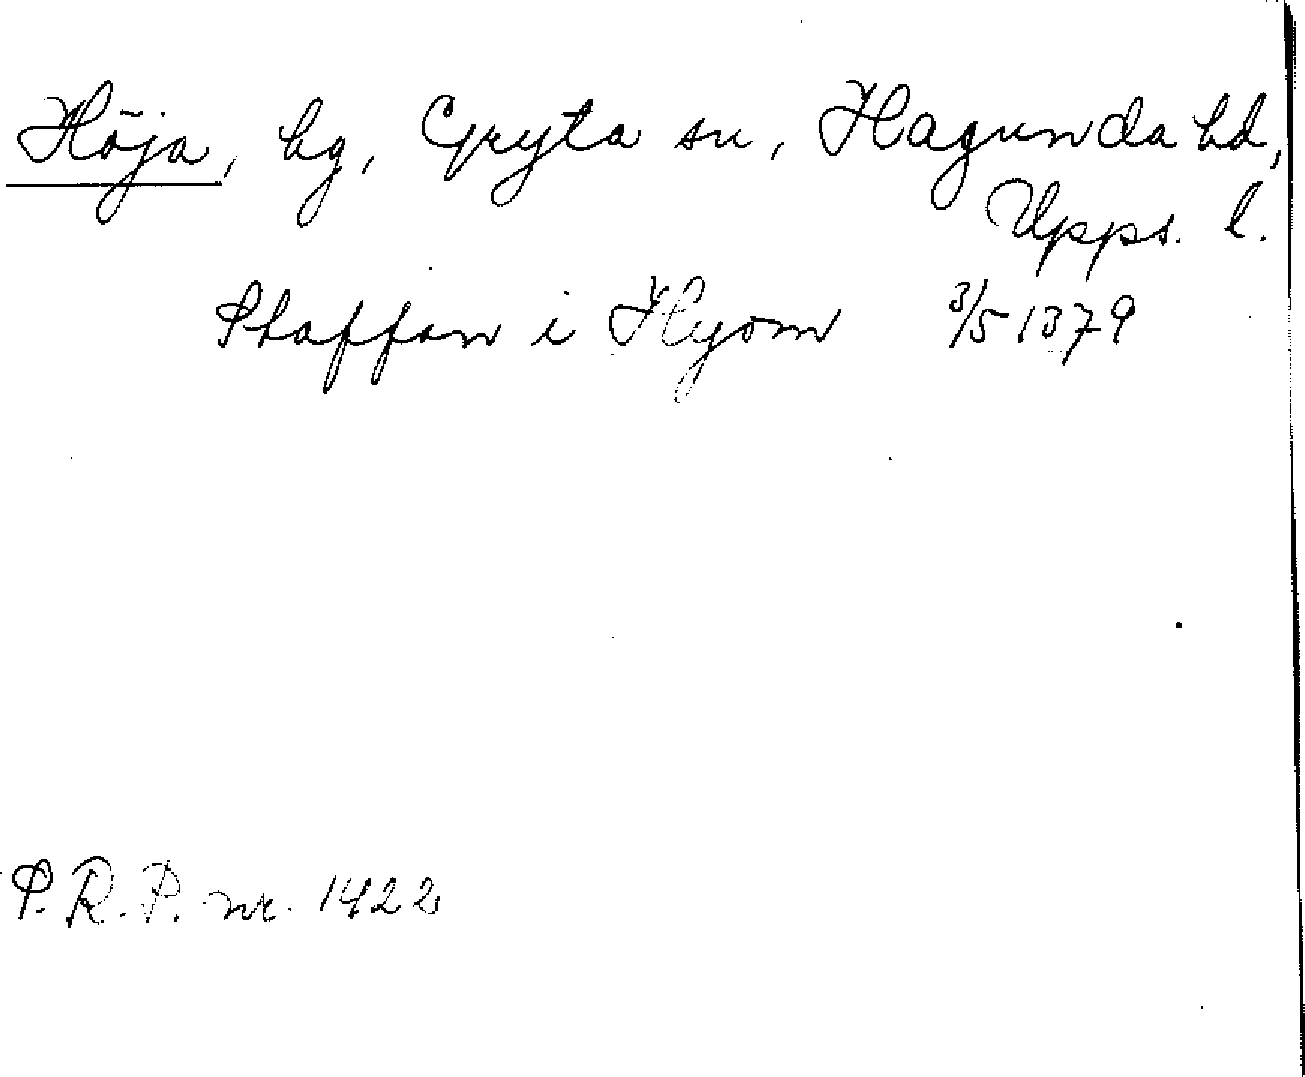 Höja, by, Gryta sn, Hagunda hd,
Upps. l.
Staffan i Hyom 3/5 1379
P.R.P. nr. 1422